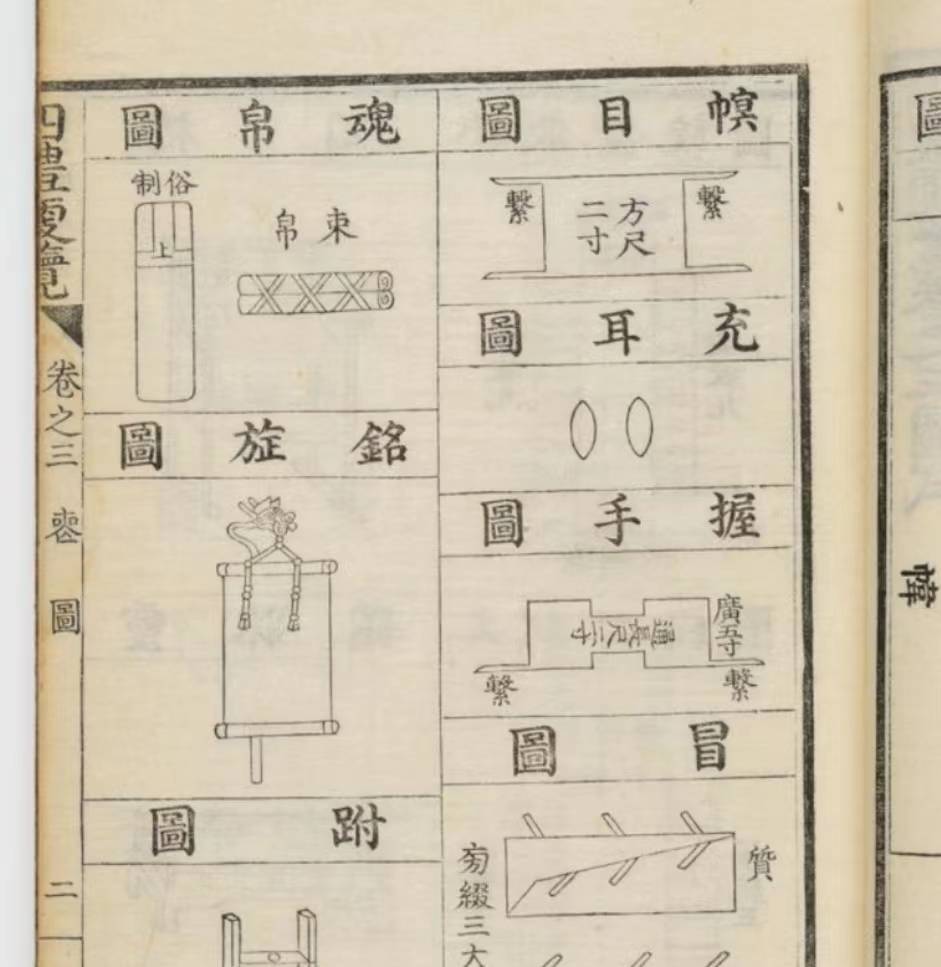 幎目圖
繫
方尺
二寸
繫
充耳圖
握手圖
廣五寸
通長尺二寸
繫
繫
冒圖
質
旁綴三大
魂帛圖
束帛
俗制
上
銘旌圖
跗圖
四禮便覽
卷之三
喪
圖
二
圖